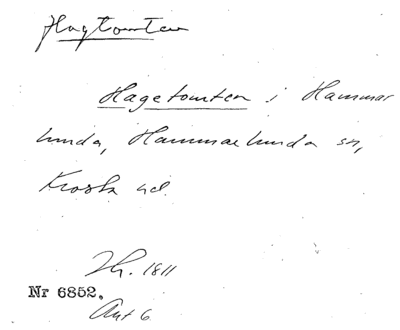 Hagtomten
Hagetomten i Hammar
lunda, Hammarlunda sn,
Frosta hd.
Zh. 1811
Nr 6852.
Ant 6